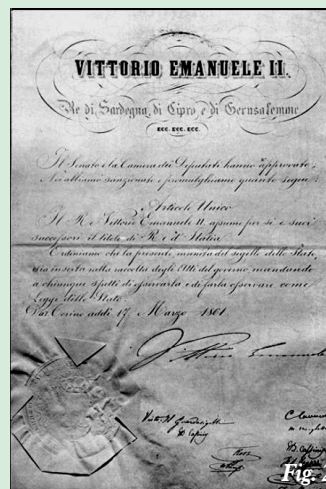 VITTORIO EMANUELE II.
Re di Sardegna, di Cipro e di Gerusalemme
ECC. ECC. ECC.
Il Senato e la Camera dei Deputati hanno approvato,
Noi abbiamo sanzionato e promulghiamo quanto segue:
Articolo Unico
Il Re Vittorio Emanuele II assume per sé e suoi
successori il titolo di Re d'Italia.
Ordiniamo che la presente, munita del sigillo dello Stato,
sia inserta nella raccolta degli Atti del governo, mandando
a chiunque spetti di osservarla e di farla osservare come
legge dello Stato.
Dat. Torino addì 17 Marzo 1861
Vittorio Emanuele
Fig.